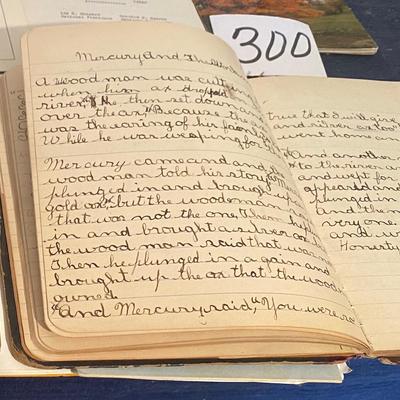 300
Mercury and The
A wood man was cutting
when his ax dropped
river, He then set down an
over the ax, Because the ax
was the earing of his food
While he was weeping for
Mercury came and
wood man told his story, Mer
plunged in and brough up
gold ax, but the woodsman
that was not the one, Then he
in and brought a silver ax
the wood man said that was n
Then he plunged in a gain and
brought up the ax that the wood
owned.
"And Mercury said, "You were so
true that I will give
and silver ax too"
went home
And another
to the river a
and wept for
appeared and
plunged in
and then
very on
and w
Honesty